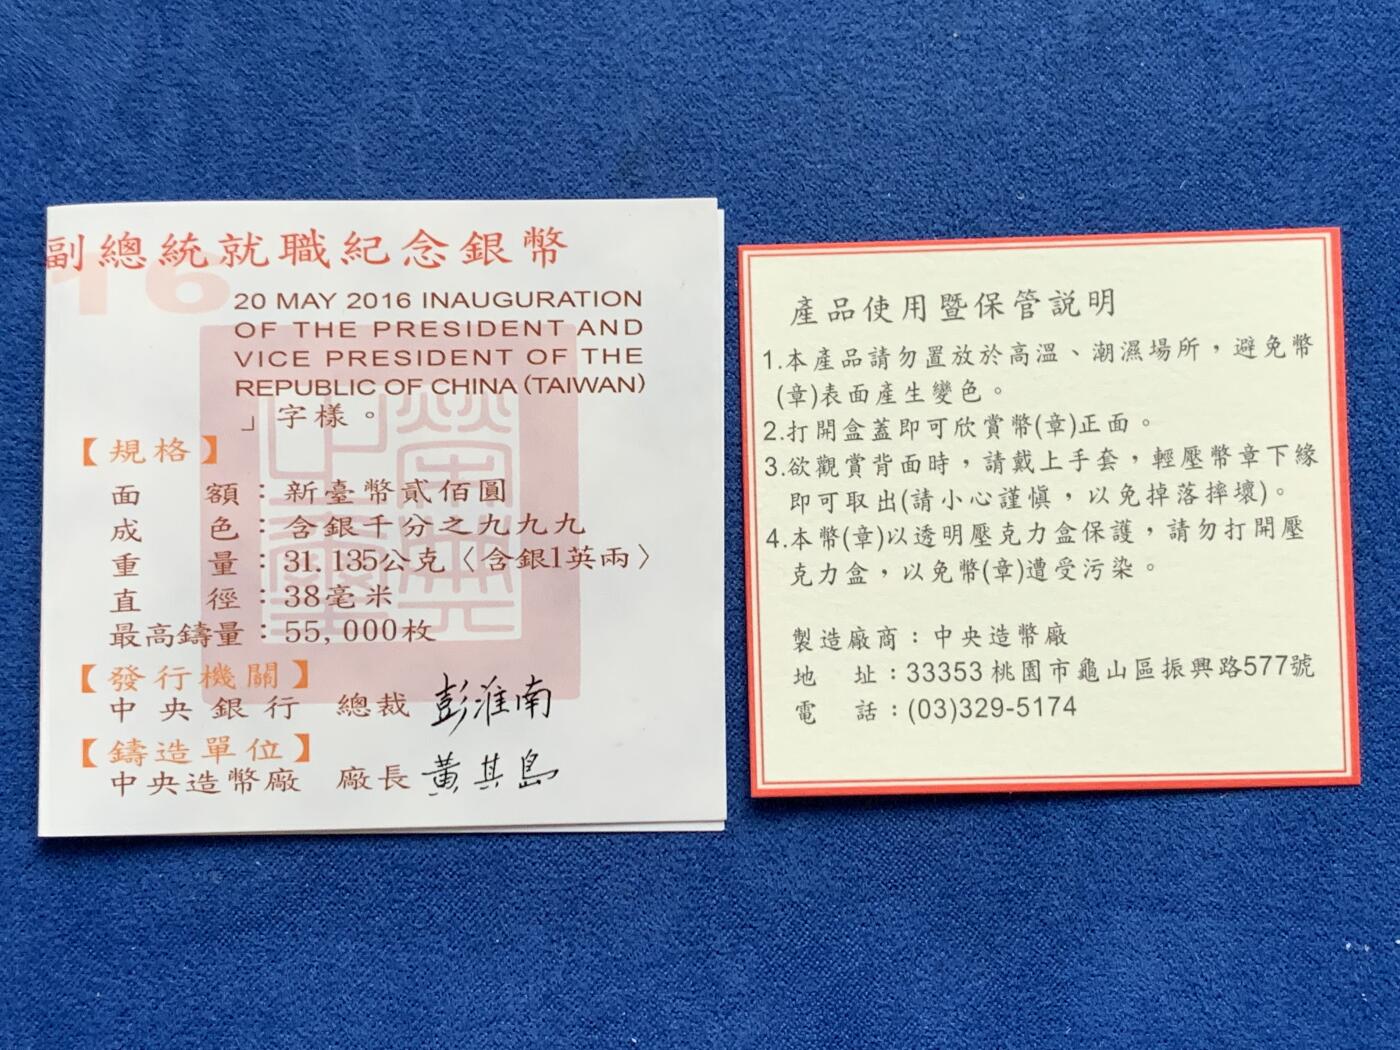 副總統就職紀念銀幣
16
20 MAY 2016 INAUGURATION
OF THE PRESIDENT AND
VICE PRESIDENT OF THE
REPUBLIC OF CHINA (TAIWAN)
」字樣。
【規格】
面額：新臺幣貳佰圓
成色：含銀千分之九九九
重量：31.135公克〈含銀1英兩〉
直徑：38毫米
最高鑄量：55,000枚
【發行機關】
中央銀行 總裁 彭淮南
【鑄造單位】
中央造幣廠 廠長 黃其島
產品使用暨保管說明
1.本產品請勿置放於高溫、潮濕場所，避免幣
(章)表面產生變色。
2.打開盒蓋即可欣賞幣(章)正面。
3.欲觀賞背面時，請戴上手套，輕壓幣章下緣
即可取出(請小心謹慎，以免掉落摔壞)。
4.本幣(章)以透明壓克力盒保護，請勿打開壓
克力盒，以免幣(章)遭受污染。
製造廠商：中央造幣廠
地址：33353桃園市龜山區振興路577號
電話：(03)329-5174